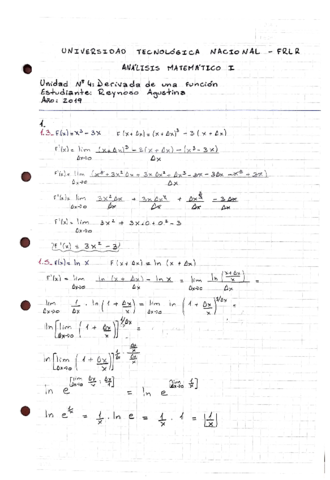 UNIVERSIDAD TECNOLÓGICA NACIONAL - FRLR
ANÁLISIS MATEMÁTICO I
Unidad N° 4: Derivada de una Función
Estudiante: Reynoso Agustina
Año: 2019
1.
1.3. F(x)=x²-3x F(x+Δx)=(x+Δx)³-3(x+Δx)
F'(x)= lim Δx→0 (x+Δx)³-3(x+Δx)-(x³-3x) / Δx
F'(x)= lim Δx→0 (x³+3x²Δx+3xΔx²+Δx³-3x-3Δx-x³+3x) / Δx
F'(x)= lim Δx→0 3x²Δx/Δx + 3xΔx²/Δx + Δx³/Δx - 3Δx/Δx
F'(x)= lim Δx→0 3x²+3x.0+0²-3
F'(x)=3x²-3
1.5. F(x)=ln x F(x+Δx)=ln(x+Δx)
F'(x)= lim Δx→0 ln(x+Δx)-ln x / Δx = lim Δx→0 ln((x+Δx)/x) / Δx =
lim Δx→0 1/Δx . ln(1+Δx/x) = lim Δx→0 ln(1+Δx/x)^(1/Δx) =
ln[lim Δx→0 (1+Δx/x)]^(1/Δx) =
ln e^(1/x) = 1/x . ln e = 1/x . 1 = 1/x